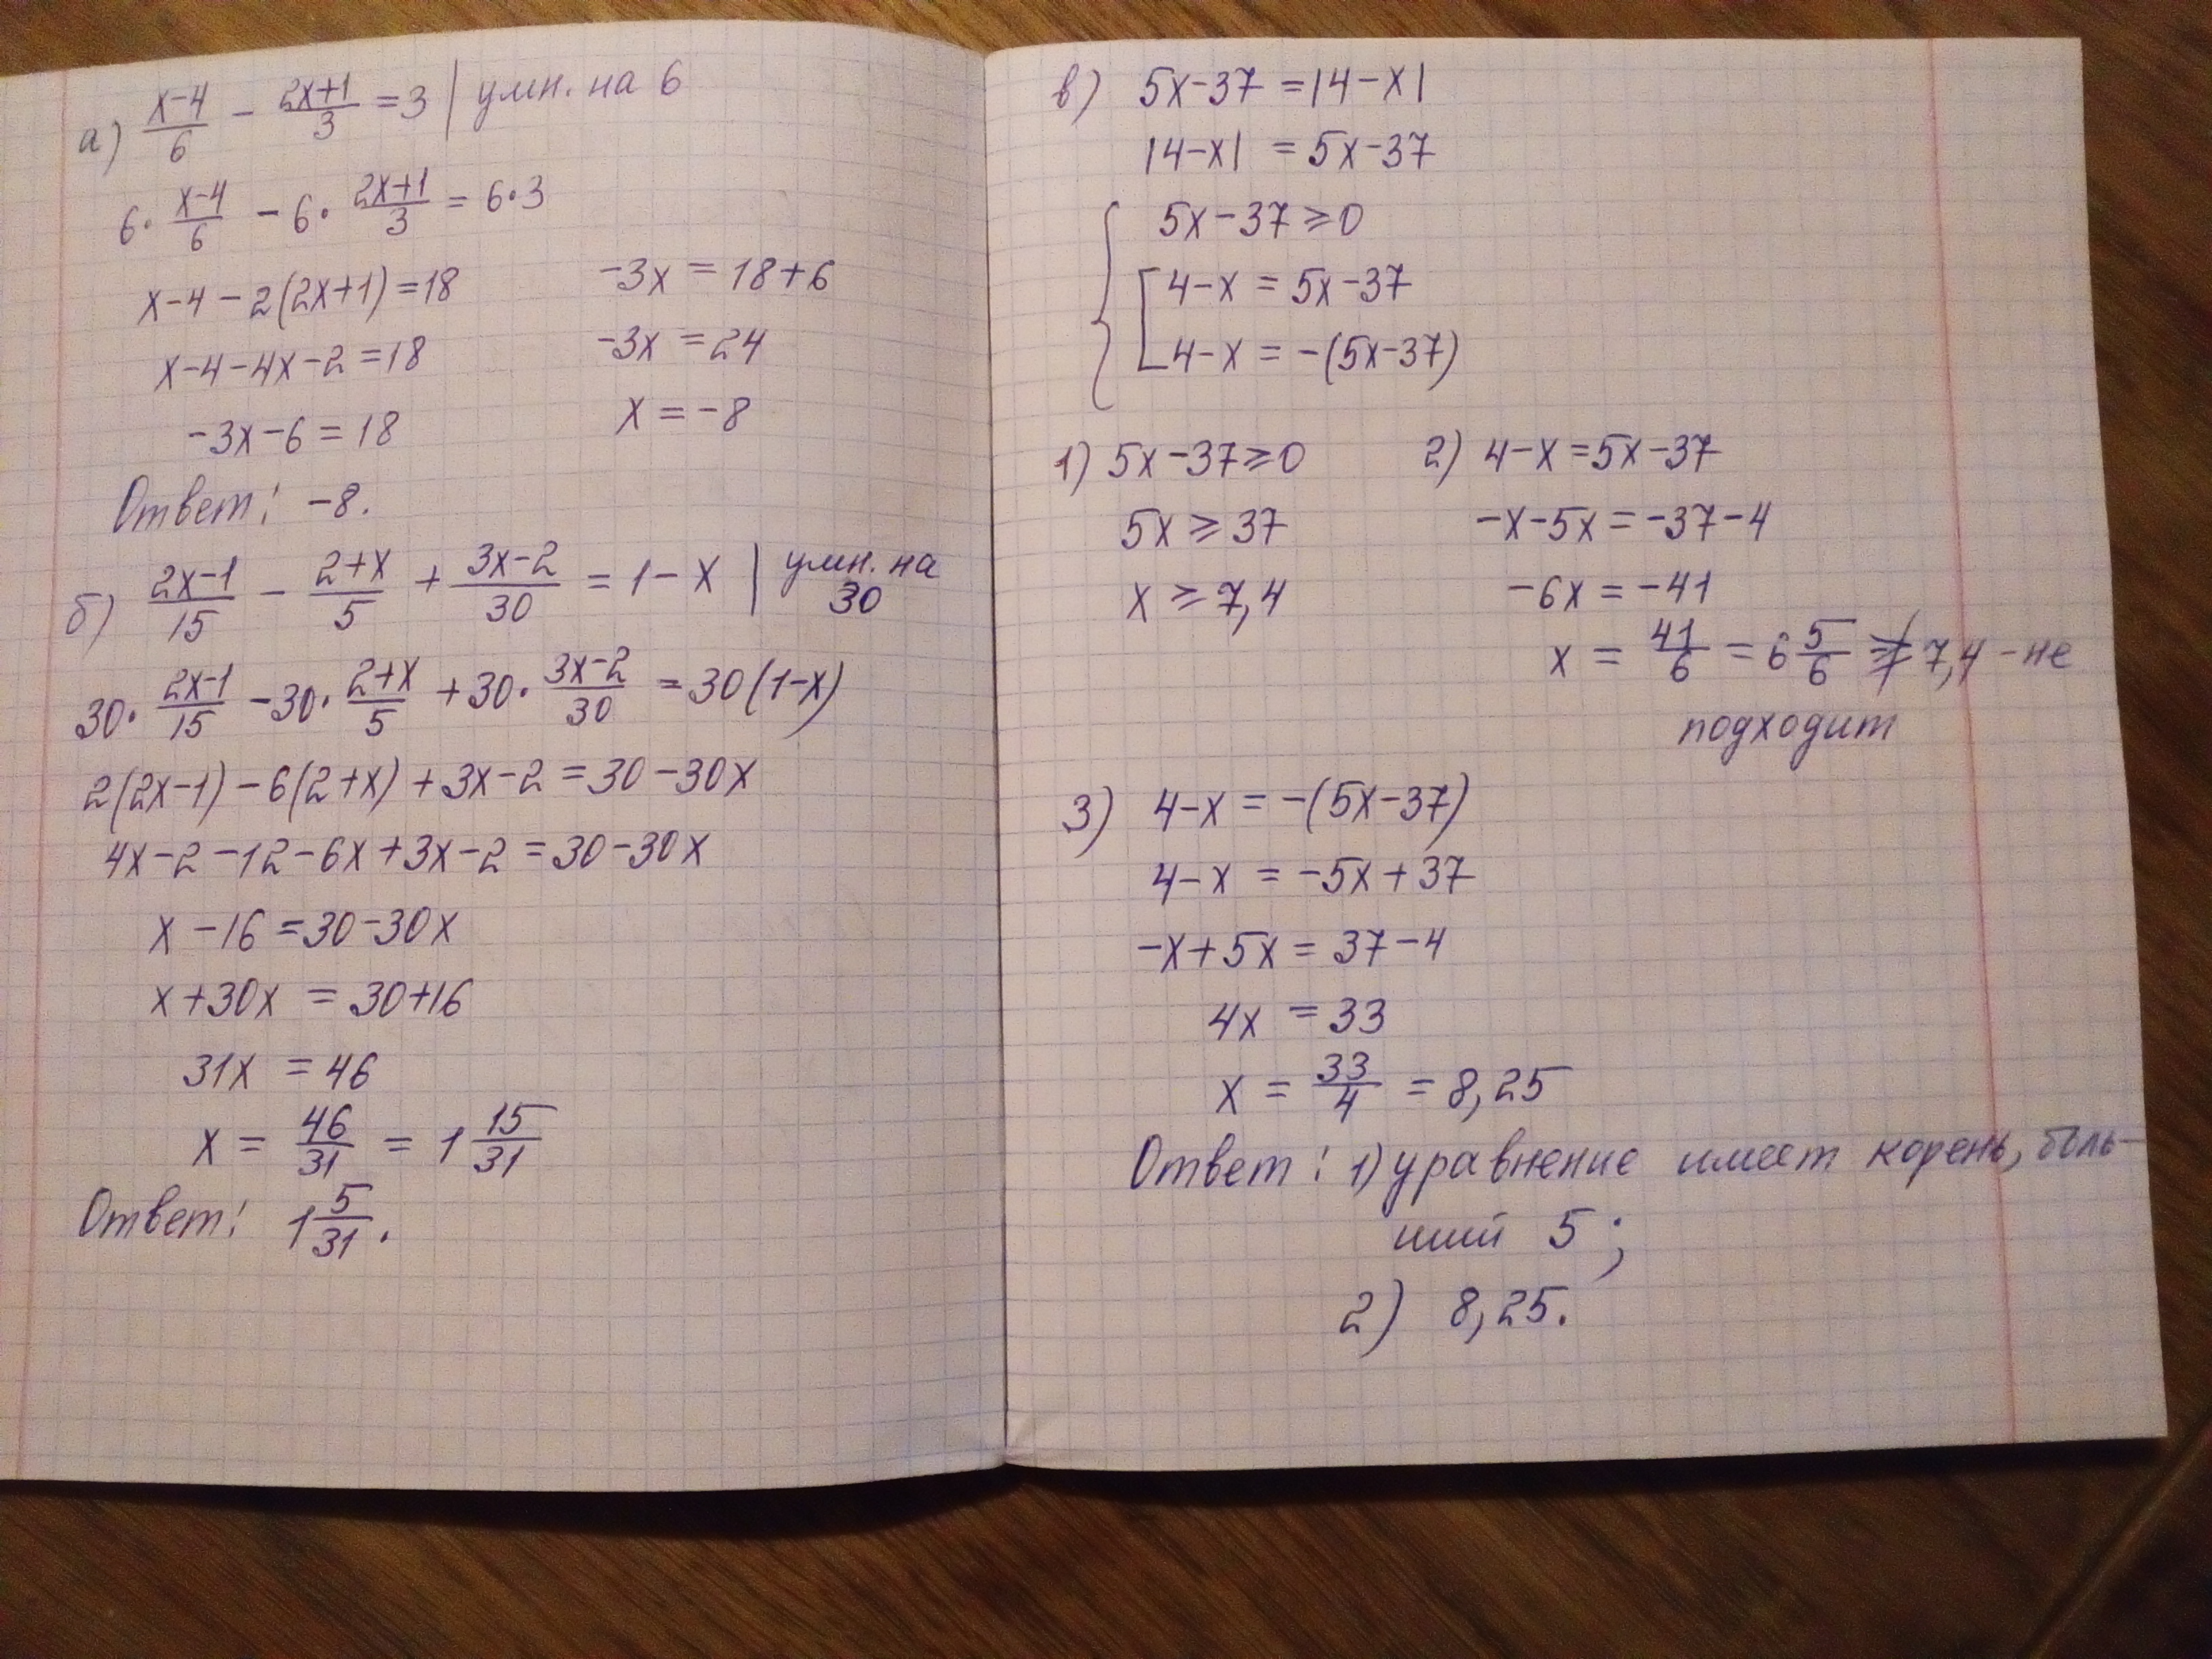 а) (x-4)/6 - (2x+1)/3 = 3 | умн. на 6
6· (x-4)/6 - 6· (2x+1)/3 = 6·3
x-4-2(2x+1)=18
x-4-4x-2=18
-3x-6=18
-3x = 18+6
-3x = 24
x = -8
Ответ: -8.
б) (2x-1)/15 - (2+x)/5 + (3x-2)/30 = 1-x | умн. на
30
30· (2x-1)/15 -30· (2+x)/5 +30· (3x-2)/30 = 30(1-x)
2(2x-1)-6(2+x)+3x-2=30-30x
4x-2-12-6x+3x-2=30-30x
x-16=30-30x
x+30x = 30+16
31x = 46
x = 46/31 = 1 15/31
Ответ: 1 5/31.
в) 5x-37 = |4-x|
|4-x| = 5x-37
{ 5x-37 ⩾ 0
[ 4-x = 5x-37
4-x = -(5x-37)
1) 5x-37⩾0
5x ⩾ 37
x ⩾ 7,4
2) 4-x=5x-37
-x-5x = -37-4
-6x = -41
x = 41/6 = 6 5/6 ⩾̸ 7,4 - не
подходит
3) 4-x = -(5x-37)
4-x = -5x+37
-x+5x = 37-4
4x = 33
x = 33/4 = 8,25
Ответ: 1) уравнение имеет корень, боль-
ший 5;
2) 8,25.